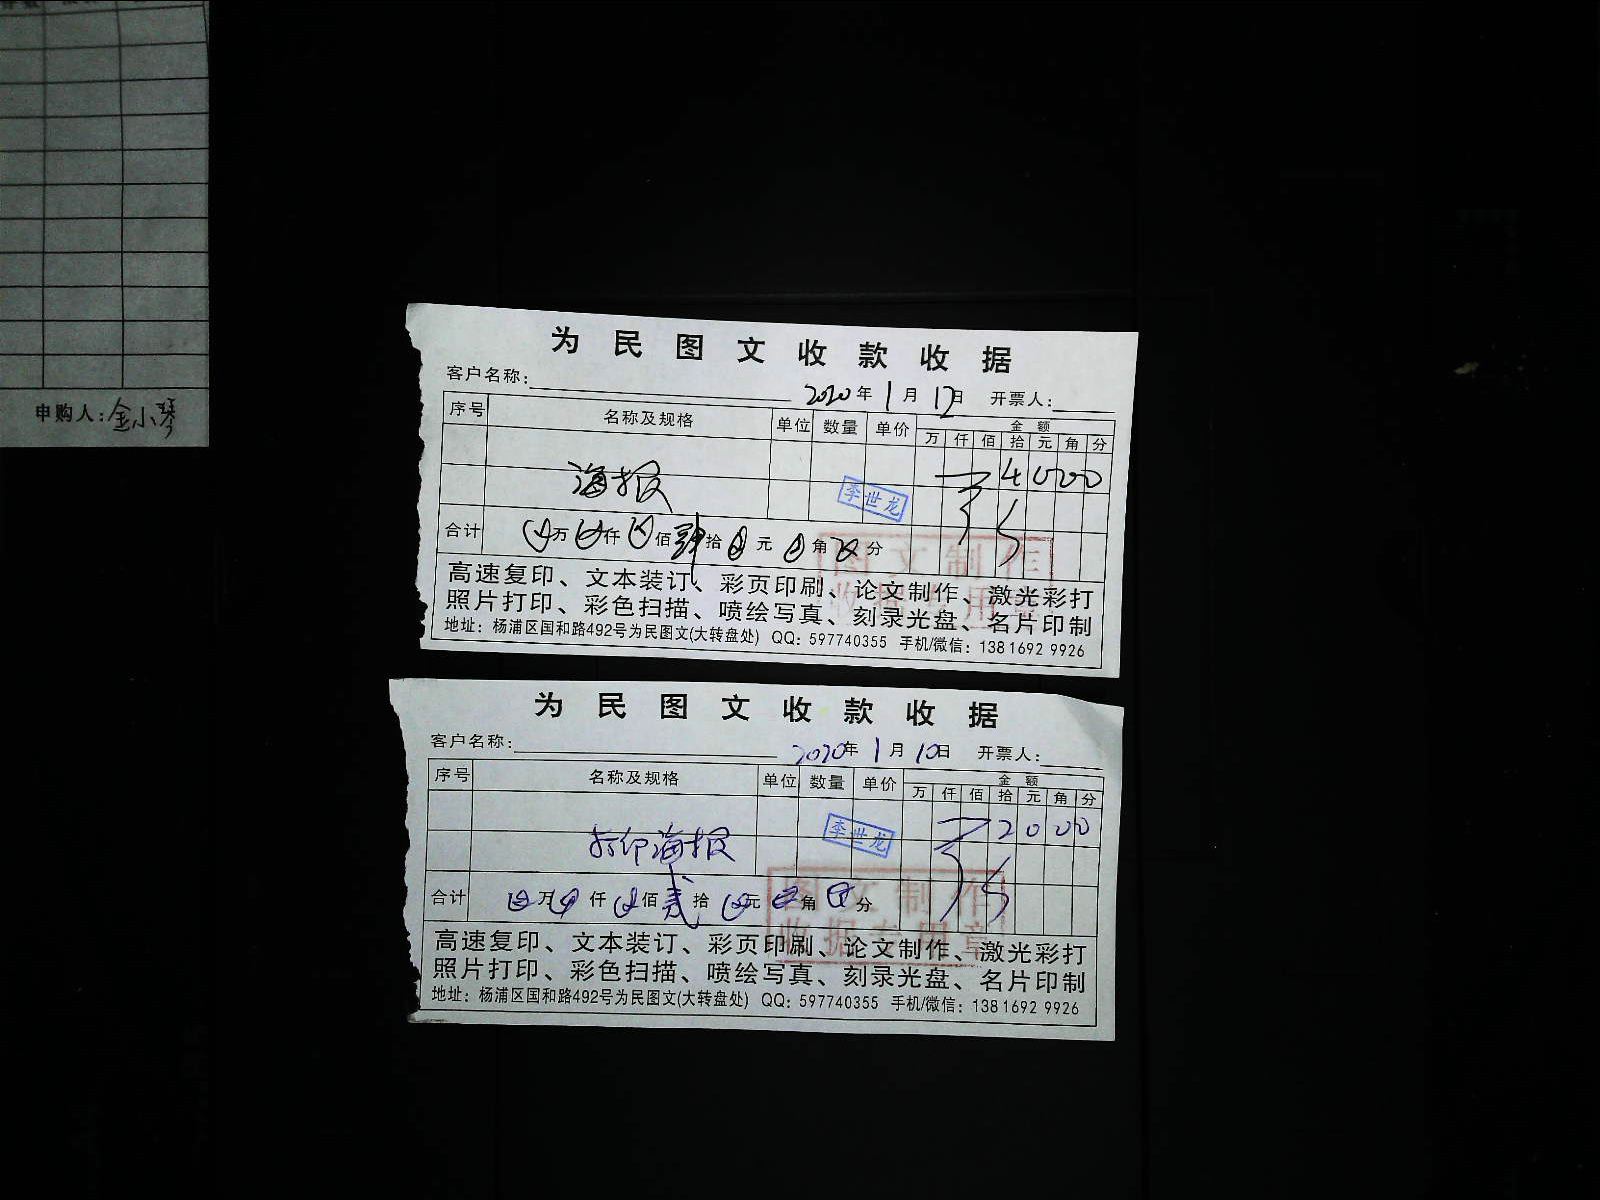 申购人：金小琴
为民图文收款收据
客户名称： 2020年1月12日 开票人：
序号 名称及规格 单位 数量 单价 金额
万 仟 佰 拾 元 角 分
4000
海报
李世龙
合计 万 仟 佰 肆拾 元 角 分
图文制作
收据专用章
高速复印、文本装订、彩页印刷、论文制作、激光彩打
照片打印、彩色扫描、喷绘写真、刻录光盘、名片印制
地址：杨浦区国和路492号为民图文(大转盘处) QQ：597740355 手机/微信：138 1692 9926
为民图文收款收据
客户名称： 2020年1月10日 开票人：
序号 名称及规格 单位 数量 单价 金额
万 仟 佰 拾 元 角 分
2000
打印海报
李世龙
合计 万 仟 佰 贰拾 元 角 分
图文制作
收据专用章
高速复印、文本装订、彩页印刷、论文制作、激光彩打
照片打印、彩色扫描、喷绘写真、刻录光盘、名片印制
地址：杨浦区国和路492号为民图文(大转盘处) QQ：597740355 手机/微信：138 1692 9926